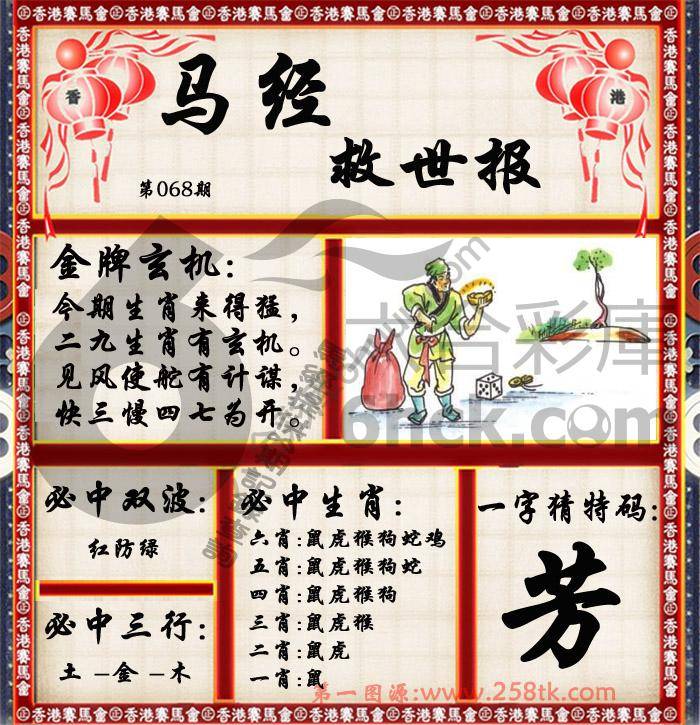 香港賽馬會
香 港
马经
救世报
第068期
金牌玄机:
今期生肖来得猛,
二九生肖有玄机。
见风使舵有计谋,
快三慢四七为开。
六合彩庫
6hck.com
必中双波:
红防绿
必中三行:
土-金-木
必中生肖:
六肖:鼠虎猴狗蛇鸡
五肖:鼠虎猴狗蛇
四肖:鼠虎猴狗
三肖:鼠虎猴
二肖:鼠虎
一肖:鼠
一字猜特码:
芳
第一图源:www.258tk.com